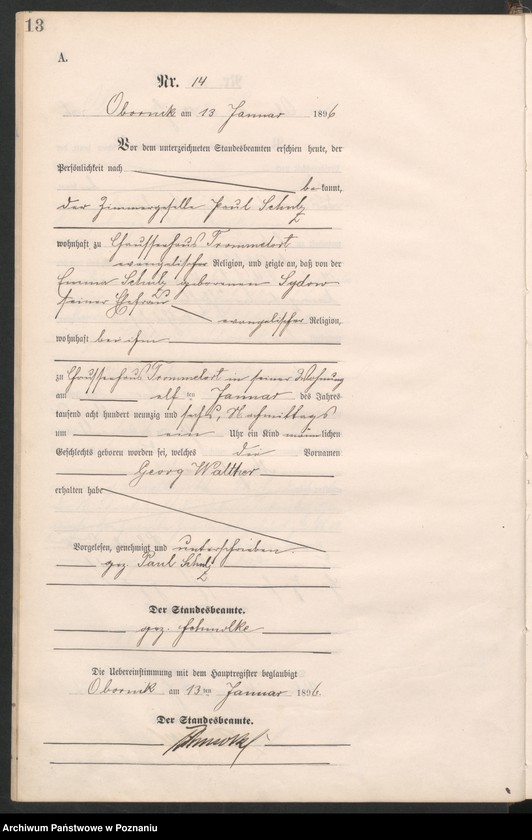 13
A.
Nr. 14
Obornik am 13 Januar 1896
Vor dem unterzeichneten Standesbeamten erschien heute, der
Persönlichkeit nach
bekannt,
der Zimmergeselle Paul Schulz
wohnhaft zu Chausseehaus Trommelort
evangelischer Religion, und zeigte an, daß von der
Emma Schulz geborenen Sydow
seiner Ehefrau
evangelischer Religion,
wohnhaft bei ihm
zu Chausseehaus Trommelort in seiner Wohnung
am elf ten Januar des Jahres
tausend acht hundert neunzig und sechs, Nachmittags
um ein Uhr ein Kind männlichen
Geschlechts geboren worden sei, welches die Vornamen
Georg Walther
erhalten habe
Vorgelesen, genehmigt und unterschrieben.
gez. Paul Schulz
Der Standesbeamte.
gez.
Die Uebereinstimmung mit dem Hauptregister beglaubigt
Obornik am 13ten Januar 1896.
Der Standesbeamte.
Archiwum Państwowe w Poznaniu